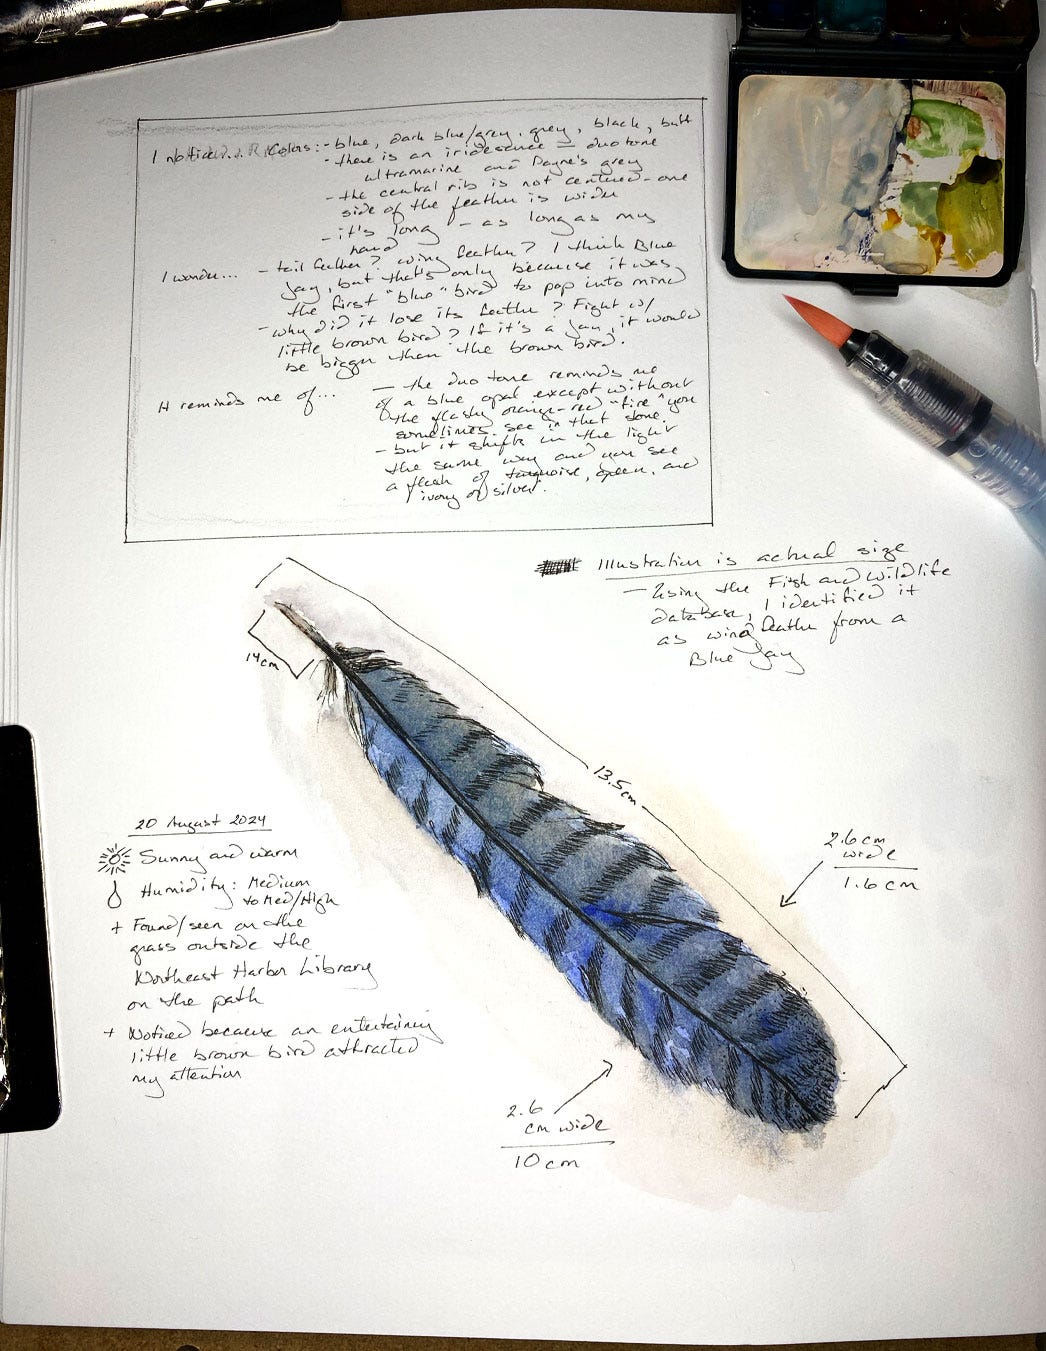 I noticed... Colors: - blue, dark blue/grey, grey, black, buff
- there is an iridescence = duotone
ultramarine and Payne's grey
- the central rib is not centered - one
side of the feather is wider
- it's long - as long as my
hand
I wonder... - tail feather? wing feather? I think Blue
Jay, but that's only because it was
the first "blue" bird to pop into mind
- why did it lose its feather? Fight w/
little brown bird? If it's a jay, it would
be bigger than the brown bird.
It reminds me of... - the duo tone reminds me
of a blue opal except without
the flashy orange-red "fire" you
sometimes see in that stone.
- but it shifts in the light
the same way and you see
a flash of turquoise, green, and
ivory or silver.
Illustration is actual size
- Using the Fish and Wildlife
database, I identified it
as wing feather from a
Blue Jay
14cm
13.5cm
2.6 cm
wide
1.6 cm
20 August 2024
Sunny and warm
Humidity: Medium
to Med/High
+ Found/seen on the
grass outside the
Northeast Harbor Library
on the path
+ Noticed because an entertaining
little brown bird attracted
my attention
2.6
cm wide
10 cm